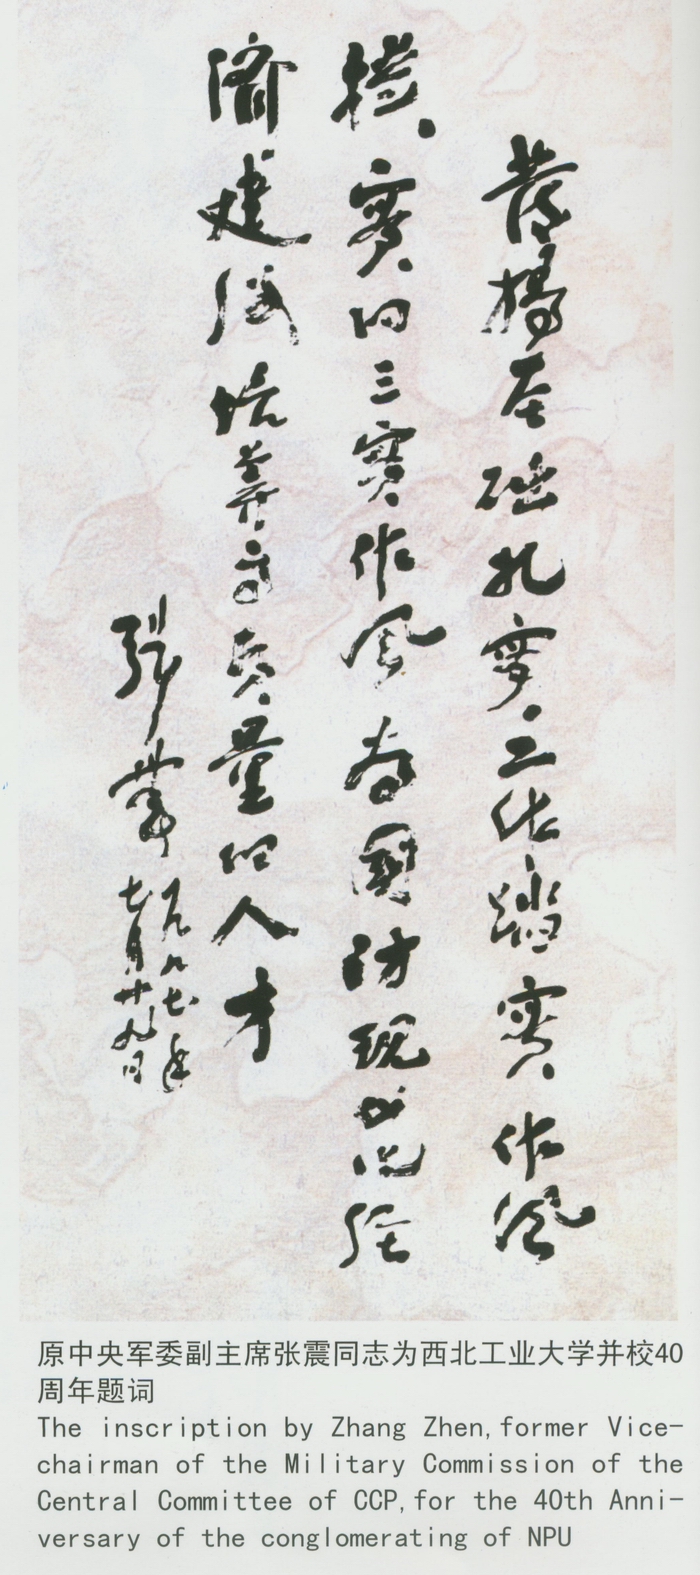 發揚基础扎实工作踏實作風
樸實的三實作風為國防現代化经
濟建设培养高质量的人才
张震
一九九七年
七月十九日
原中央军委副主席张震同志为西北工业大学并校40
周年题词
The inscription by Zhang Zhen,former Vice-
chairman of the Military Commission of the
Central Committee of CCP,for the 40th Anni-
versary of the conglomerating of NPU